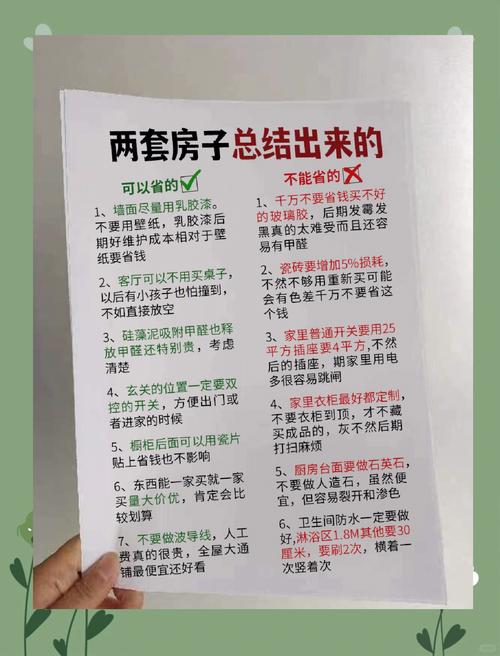 两套房子总结出来的
可以省的
1、墙面尽量用乳胶漆。
不要用壁纸，乳胶漆后
期好维护成本相对于壁
纸要省钱
2、客厅可以不用买桌子，
以后有小孩子也怕撞到，
不如直接放空
3、硅藻泥吸附甲醛也释
放甲醛还特别贵，考虑
清楚
4、玄关的位置一定要双
控的开关，方便出门或
者进家的时候
5、橱柜后面可以用瓷片
贴上省钱也不影响
6、东西能一家买就一家
买量大价优，肯定会比
较划算
7、不要做波导线，人工
费真的很贵，全屋大通
铺最便宜还好看
不能省的
1、千万不要省钱买不好
的玻璃胶，后期发霉发
黑真的太难受而且还容
易有甲醛
2、瓷砖要增加5%损耗，
不然不够用重新买可能
会有色差千万不要省这
个钱
3、家里普通开关要用25
平方插座要4平方,不然
后的插座，期家里用电
多很容易跳闸
4、家里衣柜最好都定制，
不要衣柜到顶，才不藏
买成品的，灰不然后期
打扫麻烦
5、厨房台面要做石英石，
不要做人造石，虽然便
宜，但容易裂开和渗色
6、卫生间防水一定要做
好,淋浴区1.8M其他要30
厘米，要刷2次，横着一
次竖着次